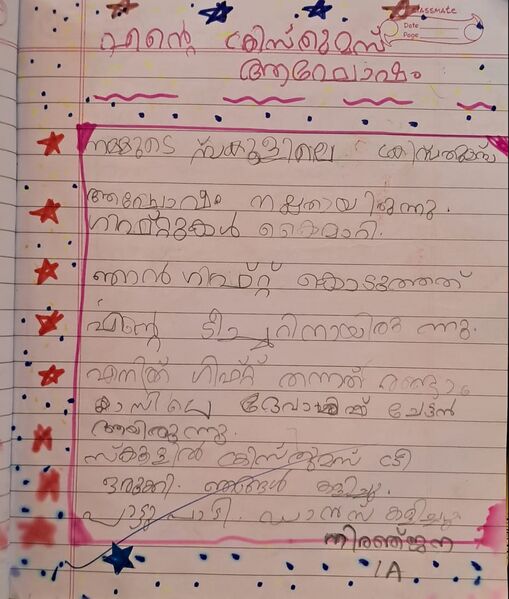 CLASSMATE
Date
Page
എന്റെ ക്രിസ്തുമസ്
ആഘോഷം
നമ്മുടെ സ്കൂളിലെ ക്രിസ്തുമസ്
ആഘോഷം നല്ലതായിരുന്നു.
ഗിഫ്റ്റുകൾ കൈമാറി.
ഞാൻ ഗിഫ്റ്റ് കൊടുത്തത്
എന്റെ ടീച്ചറിനായിരുന്നു.
എനിക്ക് ഗിഫ്റ്റ് തന്നത് രണ്ടാം
ക്ലാസിലെ ചേട്ടൻ
ആയിരുന്നു.
സ്കൂളിൽ ക്രിസ്തുമസ് ട്രീ
ഒരുക്കി. ഞങ്ങൾ കളിച്ചു.
പാട്ടു പാടി. ഡാൻസ് കളിച്ചു
നിരഞ്ജന
1A